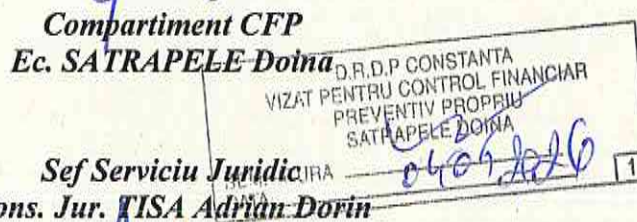 Compartiment CFP
Ec. SATRAPELE Doina
D.R.D.P CONSTANTA
VIZAT PENTRU CONTROL FINANCIAR
PREVENTIV PROPRIU
SATRAPELE DOINA
Sef Serviciu Juridic
ons. Jur. TISA Adrian Dorin
1